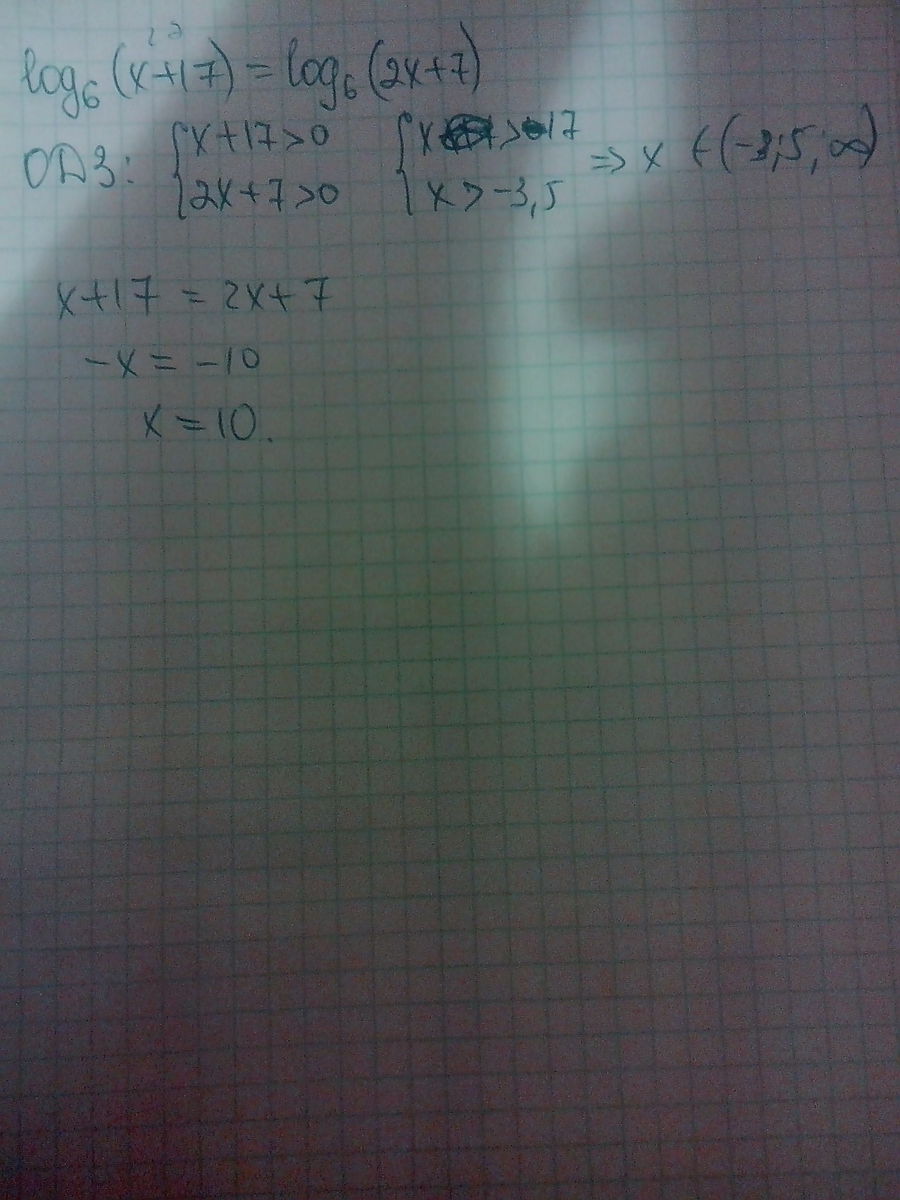 log₆(x+17) = log₆(2x+7)
ОДЗ: {x+17>0 {x > -17 ⇒ x ∈ (-3,5; ∞)
{2x+7>0 {x > -3,5
x+17 = 2x+7
-x = -10
x = 10.